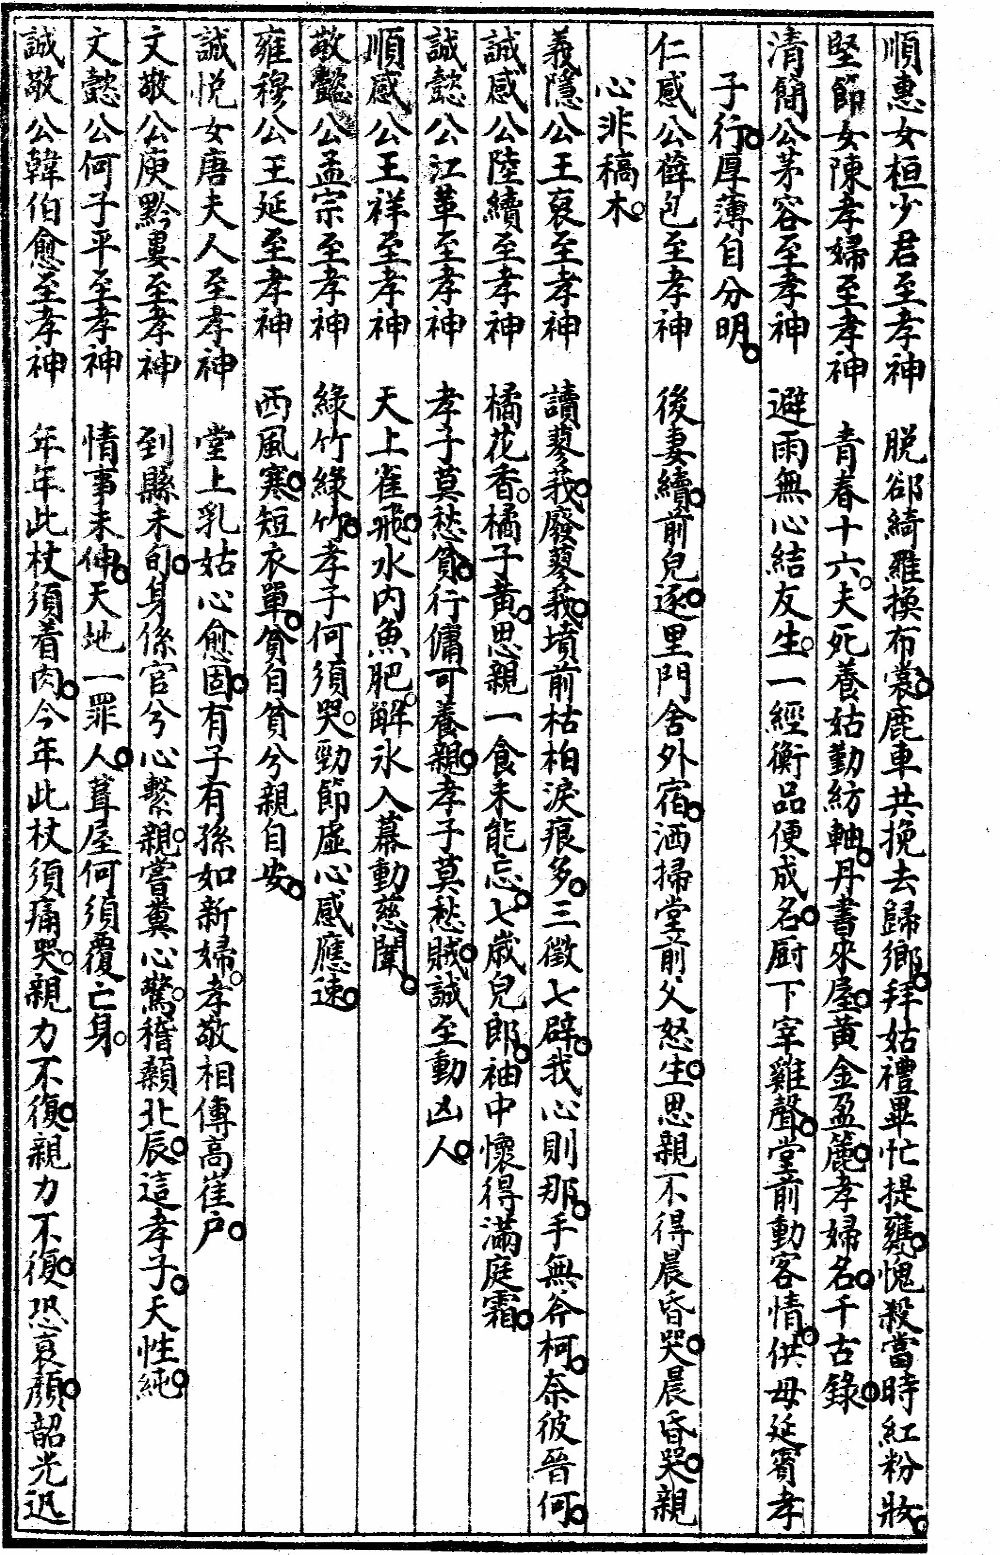 順惠女桓少君至孝神　脱卻綺羅換布裳鹿車共挽去歸鄉拜姑禮畢忙提甕愧殺當時紅粉妝
堅節女陳孝婦至孝神　青春十六夫死養姑勤紡軸丹書來屋黃金盈簏孝婦名千古錄
清簡公茅容至孝神　避雨無心結友生一經衡品便成名厨下宰雞聲堂前動客情供母延賓孝
子行厚薄自分明
仁感公薛包至孝神　後妻續前兒逐里門舍外宿洒掃堂前父怒生思親不得晨昏哭晨昏哭親
心非稿木
義隱公王裒至孝神　讀蓼莪廢蓼莪墳前枯柏淚痕多三徵七辟我心則那手無斧柯奈彼晉何
誠感公陸績至孝神　橘花香橘子黃思親一食未能忘七歲兒郎袖中懷得滿庭霜
誠懿公江革至孝神　孝子莫愁貧行傭可養親孝子莫愁賊誠至動凶人
順感公王祥至孝神　天上雀飛水内魚肥解冰入幕動慈闈
敬懿公孟宗至孝神　綠竹綠竹孝子何須哭勁節虛心感應速
雍穆公王延至孝神　西風寒短衣單貧自貧兮親自安
誠悅女唐夫人至孝神　堂上乳姑心愈固有子有孫如新婦孝敬相傳高崔戶
文敬公庾黔婁至孝神　到縣未旬身係官兮心繫親嘗糞心驚稽顙北辰這孝子天性純
文懿公何子平至孝神　情事未伸天地一罪人葺屋何須覆亡身
誠敬公韓伯愈至孝神　年年此杖須着肉今年此杖須痛哭親力不復親力不復恐哀顏韶光迅